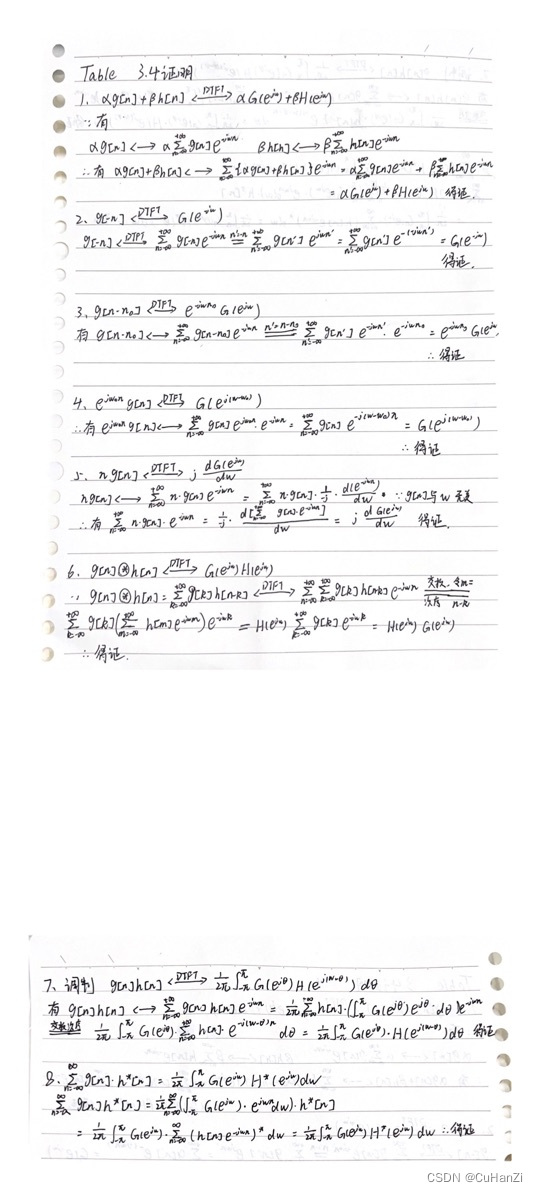 Table 3.4证明
1. αg[n]+βh[n] <-DTFT-> αG(e^{jω})+βH(e^{jω})
∵有
αg[n]<-->α∑_{n=-∞}^{+∞}g[n]e^{-jωn} βh[n]<-->β∑_{n=-∞}^{+∞}h[n]e^{-jωn}
∴有 αg[n]+βh[n]<--> ∑_{n=-∞}^{+∞}{αg[n]+βh[n]}e^{-jωn}=α∑_{n=-∞}^{+∞}g[n]e^{-jωn}+β∑_{n=-∞}^{+∞}h[n]e^{-jωn}
=αG(e^{jω})+βH(e^{jω}) 得证.
2. g[-n] <-DTFT-> G(e^{-jω})
g[-n] <-DTFT-> ∑_{n=-∞}^{+∞}g[-n]e^{-jωn} =(n'=-n)= ∑_{n'=-∞}^{+∞}g[n']e^{jωn'}=∑_{n'=-∞}^{+∞}g[n']e^{-(-jωn')}=G(e^{-jω})
得证.
3. g[n-n₀] <-DTFT-> e^{-jωn₀}G(e^{jω})
有 g[n-n₀]<-->∑_{n=-∞}^{+∞}g[n-n₀]e^{-jωn} =(n'=n-n₀)= ∑_{n'=-∞}^{+∞}g[n']e^{-jωn'}·e^{-jωn₀}=e^{-jωn₀}G(e^{jω})
∴得证
4. e^{jω₀n}g[n] <-DTFT-> G(e^{j(ω-ω₀)})
∴有e^{jω₀n}g[n]<-->∑_{n=-∞}^{+∞}g[n]e^{jω₀n}·e^{-jωn}=∑_{n=-∞}^{+∞}g[n]e^{-j(ω-ω₀)n}=G(e^{j(ω-ω₀)})
∴得证
5. ng[n] <-DTFT-> j dG(e^{jω})/dω
ng[n]<-->∑_{n=-∞}^{+∞}n·g[n]e^{-jωn}=∑_{n=-∞}^{+∞}n·g[n]·1/-j·d(e^{-jωn})/dω ∵g[n]与ω无关
∴有∑_{n=-∞}^{+∞}n·g[n]·e^{-jωn}=1/-j·d[∑_{n=-∞}^{+∞}g[n]·e^{-jωn}]/dω=j dG(e^{jω})/dω 得证.
6. g[n]⊛h[n] <-DTFT-> G(e^{jω})H(e^{jω})
∵g[n]⊛h[n]=∑_{k=-∞}^{+∞}g[k]h[n-k] <-DTFT-> ∑_{n=-∞}^{+∞}∑_{k=-∞}^{+∞}g[k]h[n-k]e^{-jωn} 交换次序,令m=n-k
∑_{k=-∞}^{+∞}g[k](∑_{m=-∞}^{+∞}h[m]e^{-jωm})e^{-jωk}=H(e^{jω})∑_{k=-∞}^{+∞}g[k]e^{-jωk}=H(e^{jω})G(e^{jω})
∴得证.
7、调制 g[n]h[n] <-DTFT-> 1/2π∫_{-π}^{π}G(e^{jθ})H(e^{j(ω-θ)})dθ
有 g[n]h[n]<-->∑_{n=-∞}^{+∞}g[n]h[n]e^{-jωn}=1/2π∑_{n=-∞}^{+∞}h[n]·(∫_{-π}^{π}G(e^{jθ})e^{jθn}dθ)e^{-jωn}
交换次序 1/2π∫_{-π}^{π}G(e^{jθ})·∑_{n=-∞}^{+∞}h[n]·e^{-j(ω-θ)n}dθ=1/2π∫_{-π}^{π}G(e^{jθ})·H(e^{j(ω-θ)})dθ 得证
8、∑_{n=-∞}^{∞}g[n]·h*[n]=1/2π∫_{-π}^{π}G(e^{jω})H*(e^{jω})dω
∑_{n=-∞}^{∞}g[n]h*[n]=1/2π∑_{n=-∞}^{∞}(∫_{-π}^{π}G(e^{jω})·e^{jωn}dω)·h*[n]
=1/2π∫_{-π}^{π}G(e^{jω})·∑_{n=-∞}^{∞}(h[n]e^{-jωn})*dω=1/2π∫_{-π}^{π}G(e^{jω})H*(e^{jω})dω ∴得证
CSDN @CuHanZi